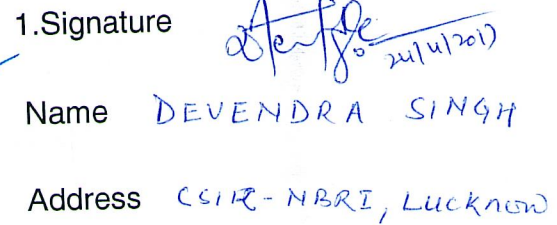 1.Signature 24/4/2017
Name DEVENDRA SINGH
Address CSIR-NBRI, Lucknow